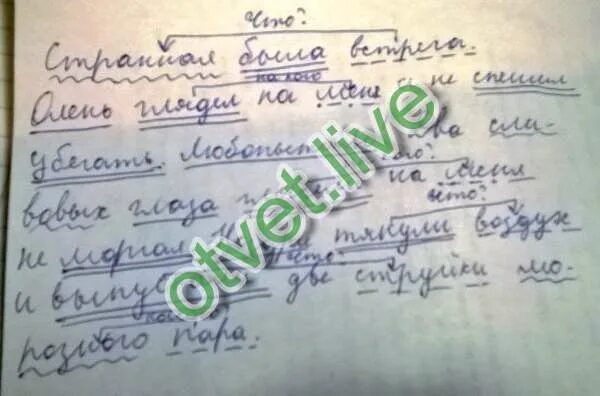 Что?
Странная была встреча.
на кого
Олень глядел на меня и не спешил
убегать. Любопыт два сли-
кого?
вовых глаза на меня
что?
не моргая тянули воздух
и выпу две струйки мо-
розного пара.
otvet.live